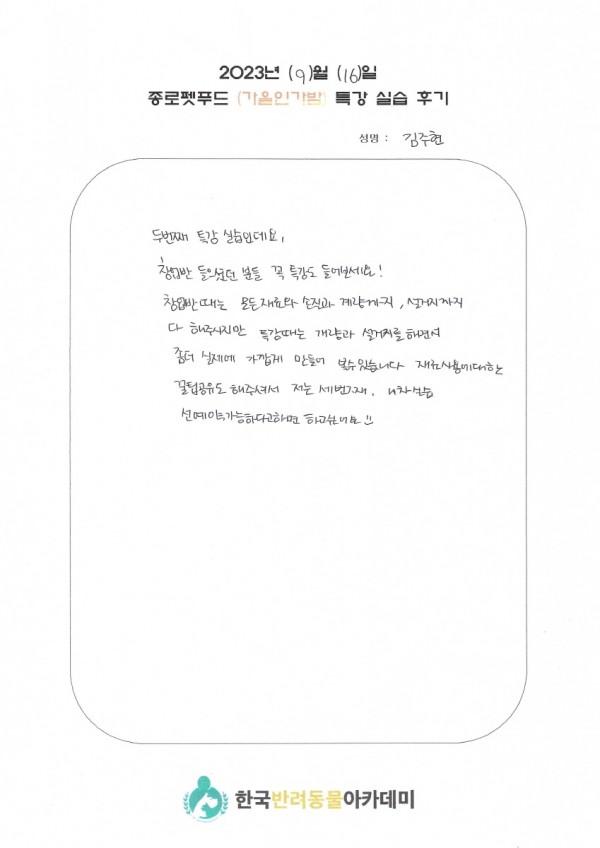 2023년 (9)월 (16)일
종로펫푸드 (가을인가밤) 특강 실습 후기
성명 : 김주현
두번째 특강 실습인데요,
창업반 들으셨던 분들 꼭 특강도 들어보세요!
창업반때는 모든재료와 손질과 계량까지, 설거지까지
다 해주시지만 특강때는 개량과 설거지를 하면서
좀더 실제에 가깝게 만들어 볼수있습니다 재료사용에대한
꿀팁공유도 해주셔서 저는 세번째, 4차실습
선예약가능하다고하면 하고싶네요
한국반려동물아카데미